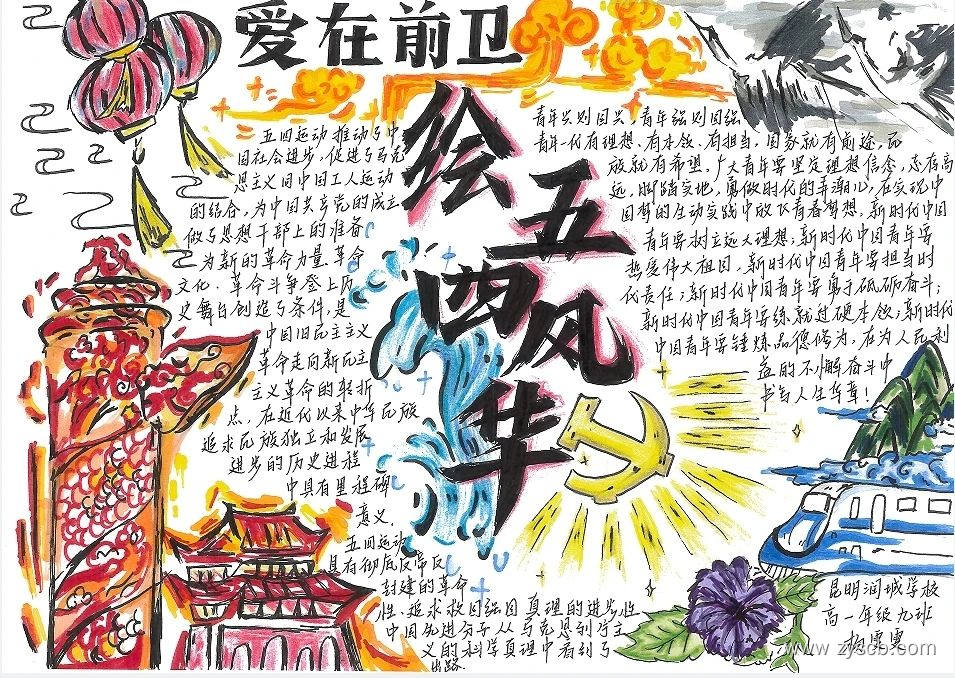 爱在前卫
绘
五四风华
五四运动推动了中
国社会进步,促进了马克
思主义同中国工人运动
的结合,为中国共产党的成立
做了思想干部上的准备
为新的革命力量.革命
文化.革命斗争登上历
史舞台创造了条件,是
中国旧民主主义
革命走向新民主
主义革命的转折
点,在近代以来中华民族
追求民族独立和发展
进步的历史进程
中具有里程碑
意义.
五四运动
具有彻底反帝反
封建的革命
性.追求救国强国真理的进步性
中国先进分子从马克思列宁主
义的科学真理中看到了
出路.
青年兴则国兴,青年强则国强
青年一代有理想.有本领.有担当,国家就有前途,民
族就有希望.广大青年要坚定理想信念,志存高
远,脚踏实地,勇做时代的弄潮儿,在实现中
国梦的生动实践中放飞青春梦想,新时代中国
青年要树立远大理想;新时代中国青年要
热爱伟大祖国,新时代中国青年要担当时
代责任;新时代中国青年要勇于砥砺奋斗;
新时代中国青年要练就过硬本领,新时代
中国青年要锤炼品德修为,在为人民利
益的不懈奋斗中
书写人生华章!
昆明润城学校
高一年级九班
www.zyscb.com